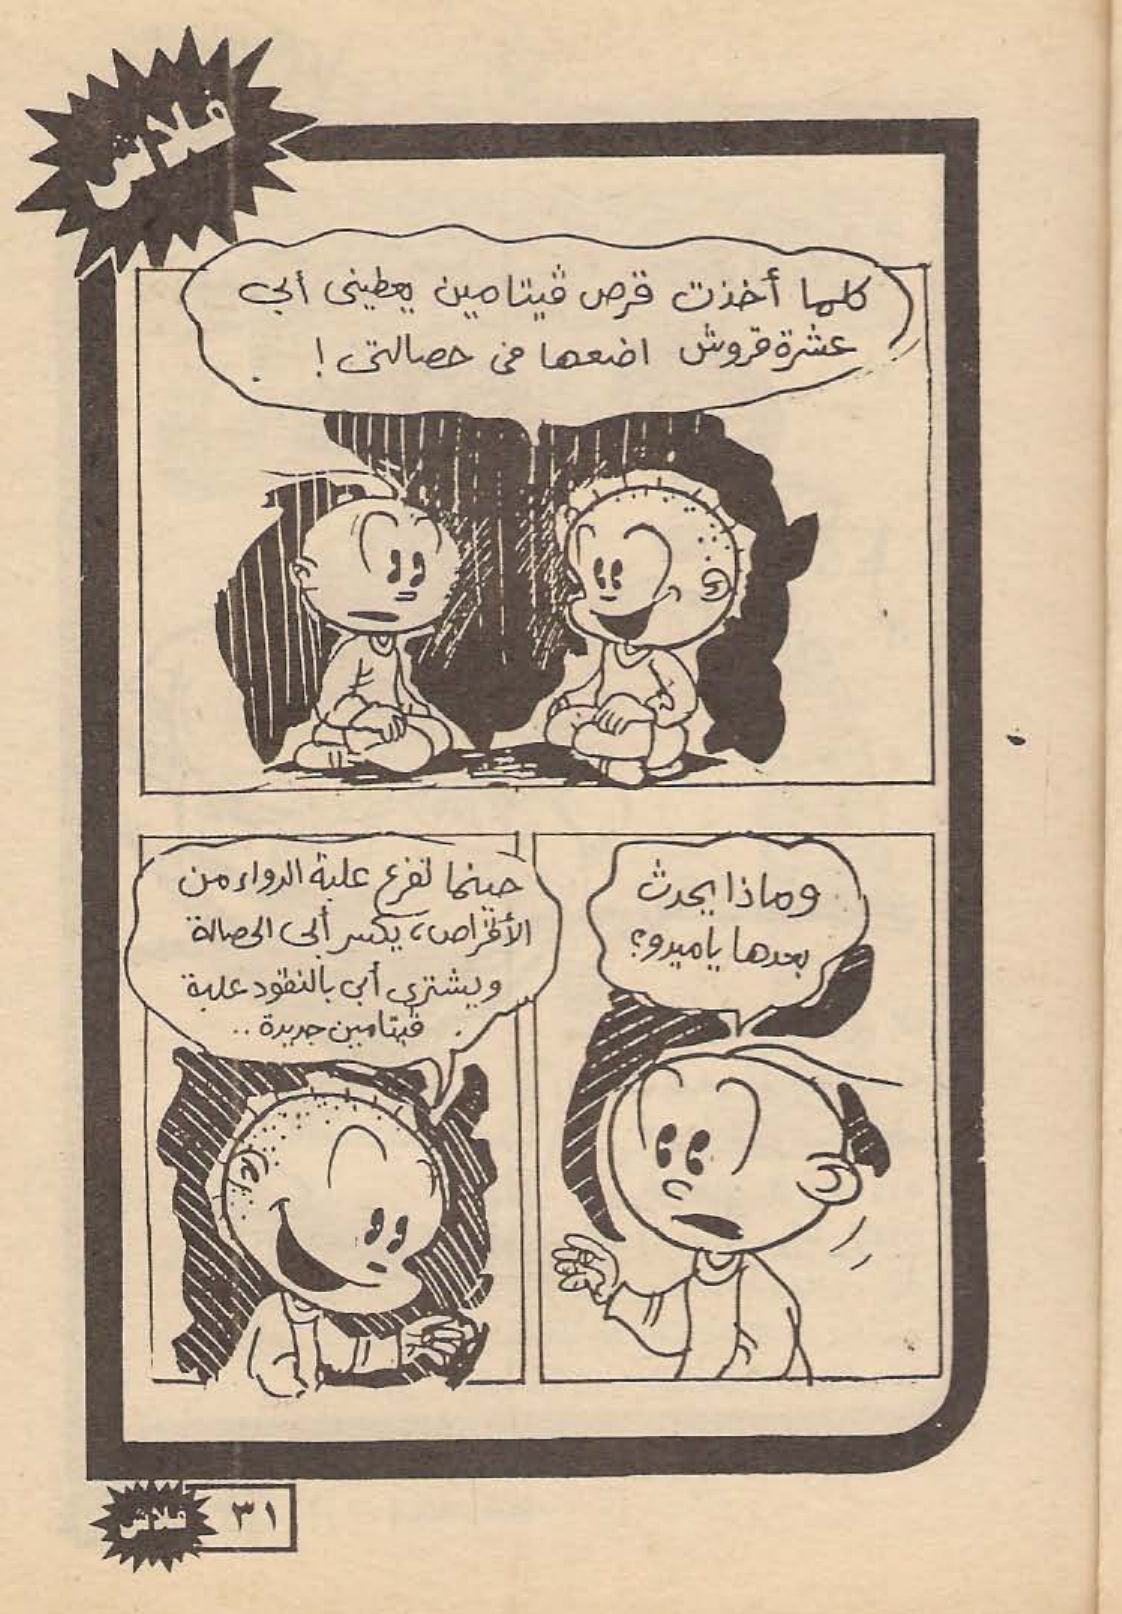 فلاش
كلما أخذت قرص ڤيتامين يعطينى أبى
عشرة قروش اضعها فى حصالتى !
وماذا يحدث
بعدها ياميدو؟
حينما تفرغ علبة الدواء من
الأقراص، يكسر أبى الحصالة
ويشترى أبى بالنقود علبة
ڤيتامين جديدة ..
فلاش ٣١